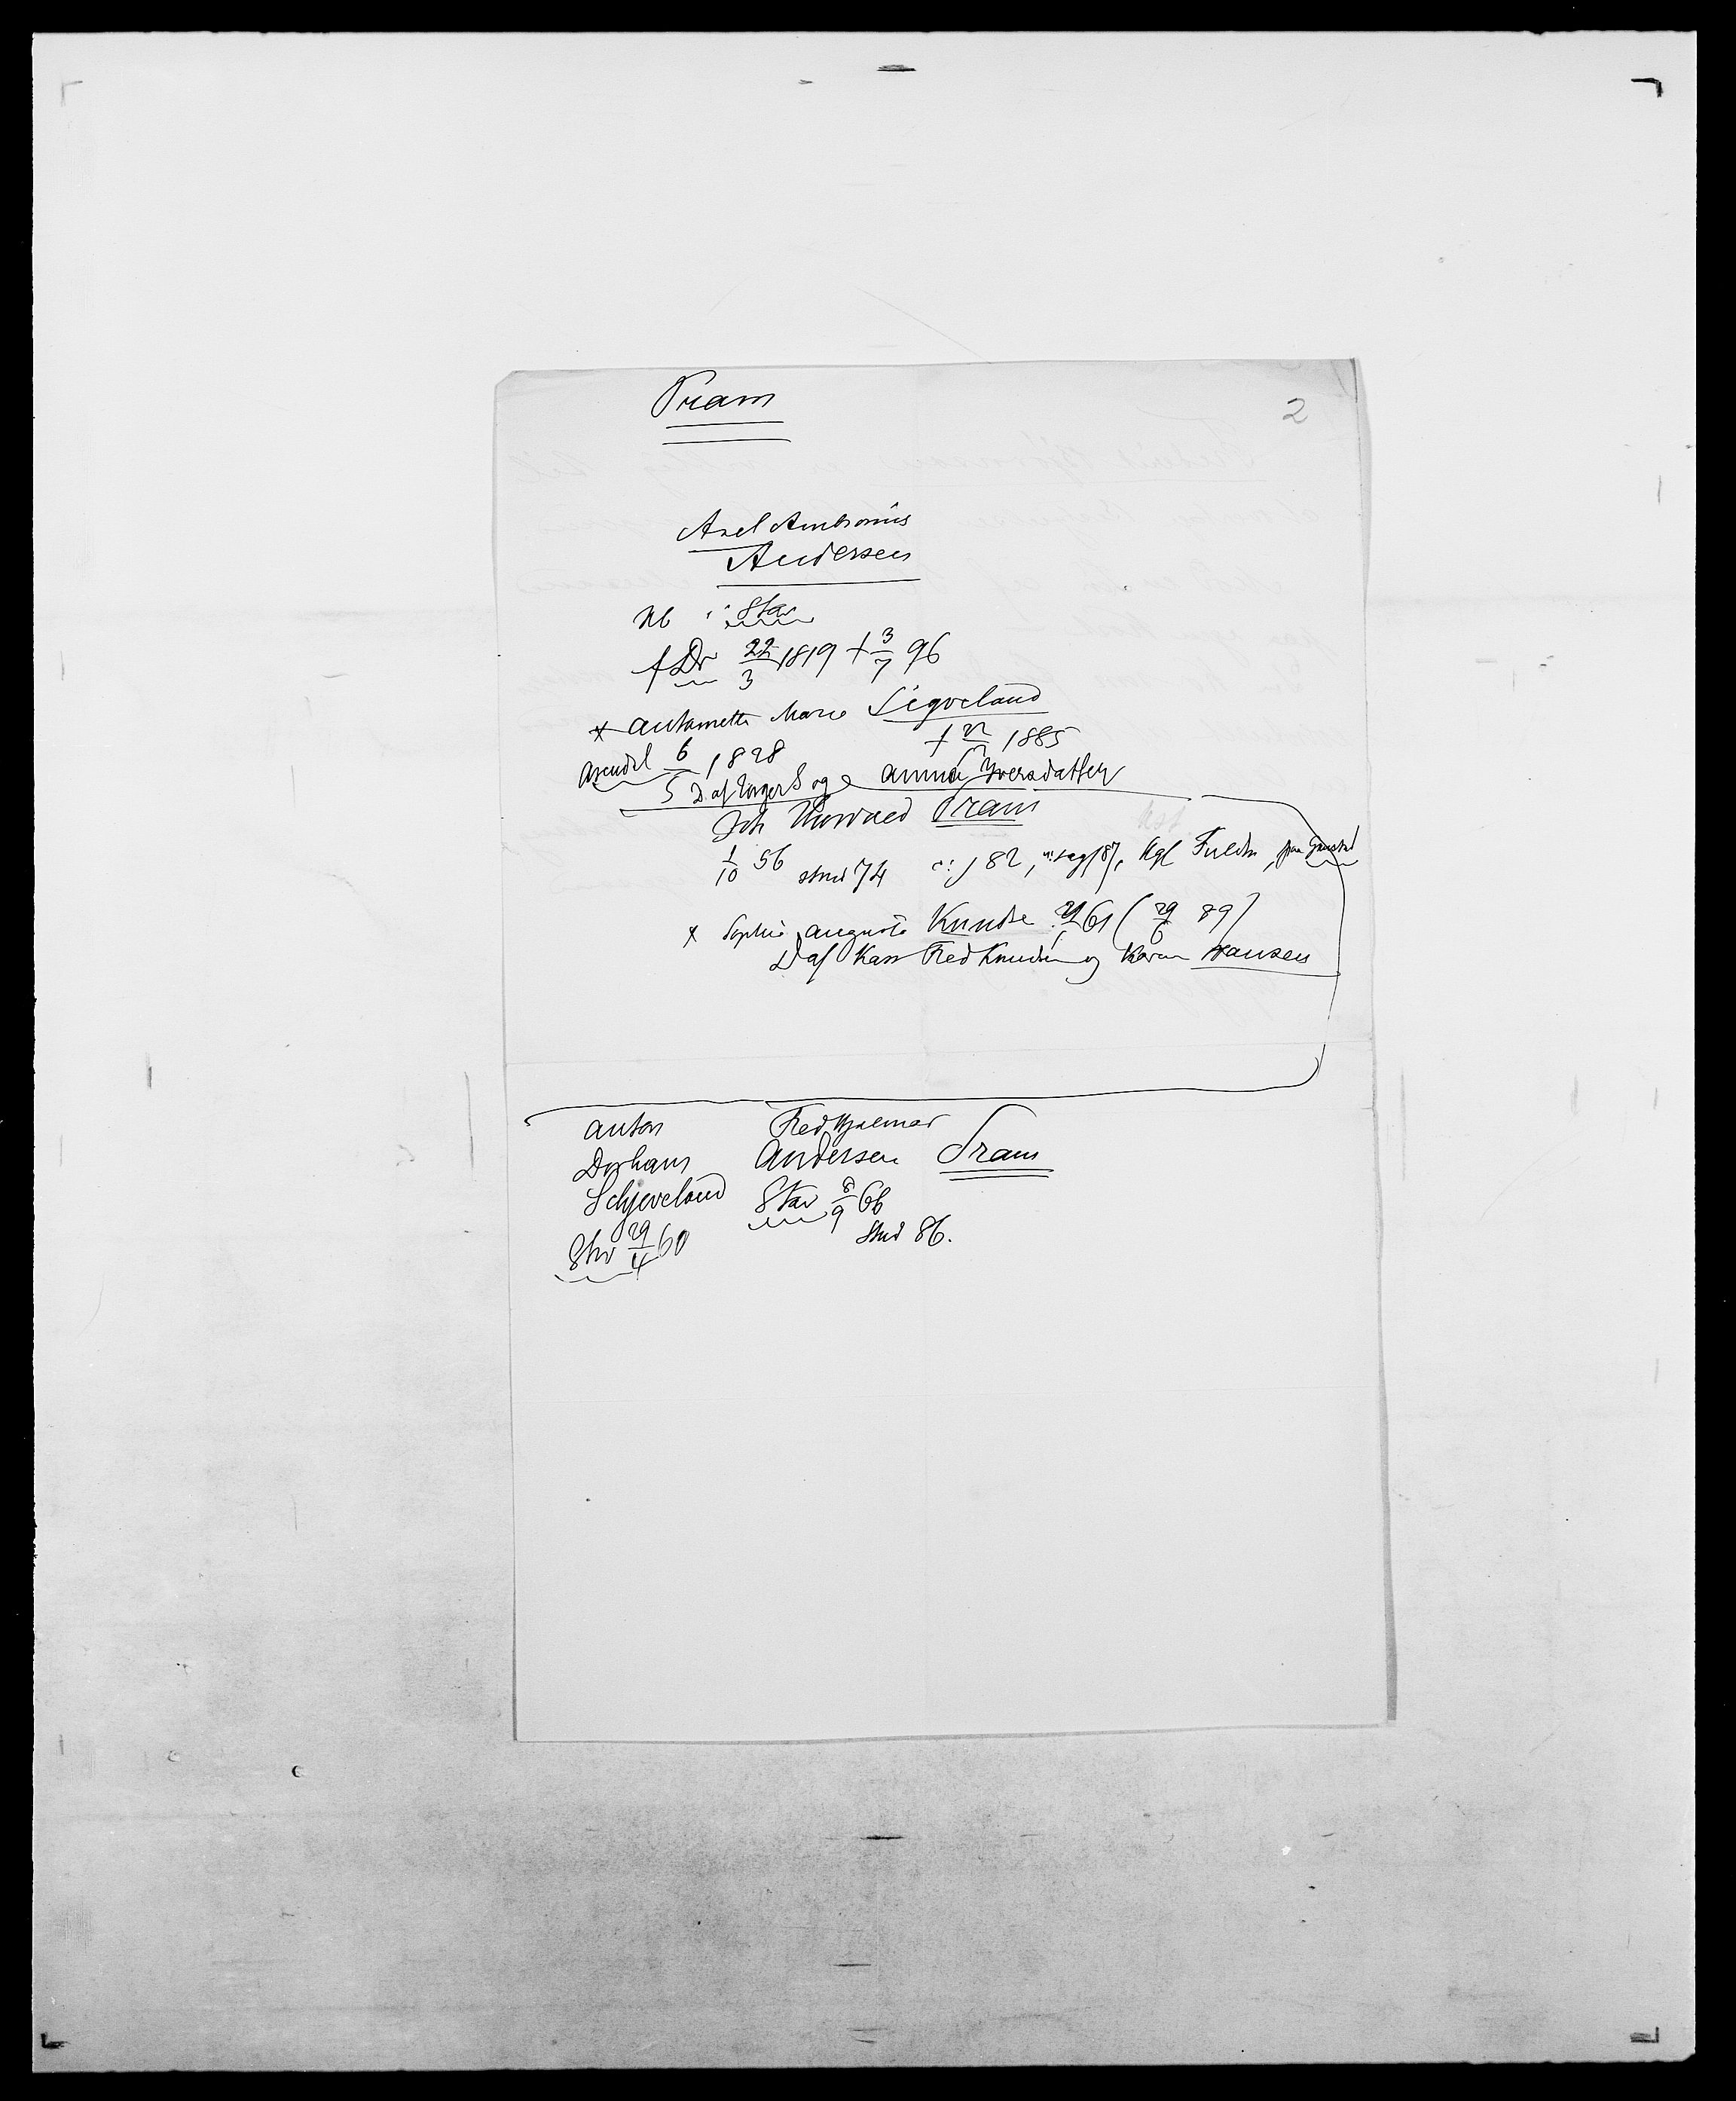 Pram
2
Axel Ambronius
Andersen
Kb i Stav
f Dr 22/3 1819 + 3/7 96
* Antonette Marie Sigveland
+ 1885
Arendal 6/5 1828
D af Inger S og Anna Yversdatter
Joh Thorvaed Pram
1/10 56 stud 74 c: j 82, sagf 87, Kgl Fuldm,
* Sophie Auguste Knudse 61 (29/6 89)
D af Kass Fred Knudsen og Karen Hansen
Anton
Dorhans
Schjeveland
Stav 29/4 60
Fred Hjalmar
Andersen Pram
Stav 8/9 66
stud 86.